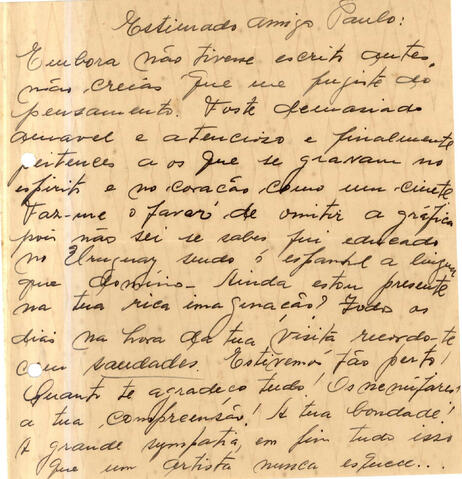 Estimado amigo Paulo:
Embora não tivesse escrito antes,
não creias que me fugiste do
pensamento. Foste demasiado
amavel e atencioso e finalmente
pertences a os que se gravam no
espirito e no coracão como um
o favor de omitir a gráfica
pois não sei se sabes fui educado
no Uruguay sendo o espanhol a lingua
que domino. Ainda estou presente
na tua rica imaginacão? Todo os
dias na hora da tua visita recordo-te
com saudades. Estivemos tão perto!
Quanto te agradeço tudo! Os nenufares!
a tua compreensão! A tua bondade!
A grande sympatia, em fim tudo isso
que um artista nunca esquece...